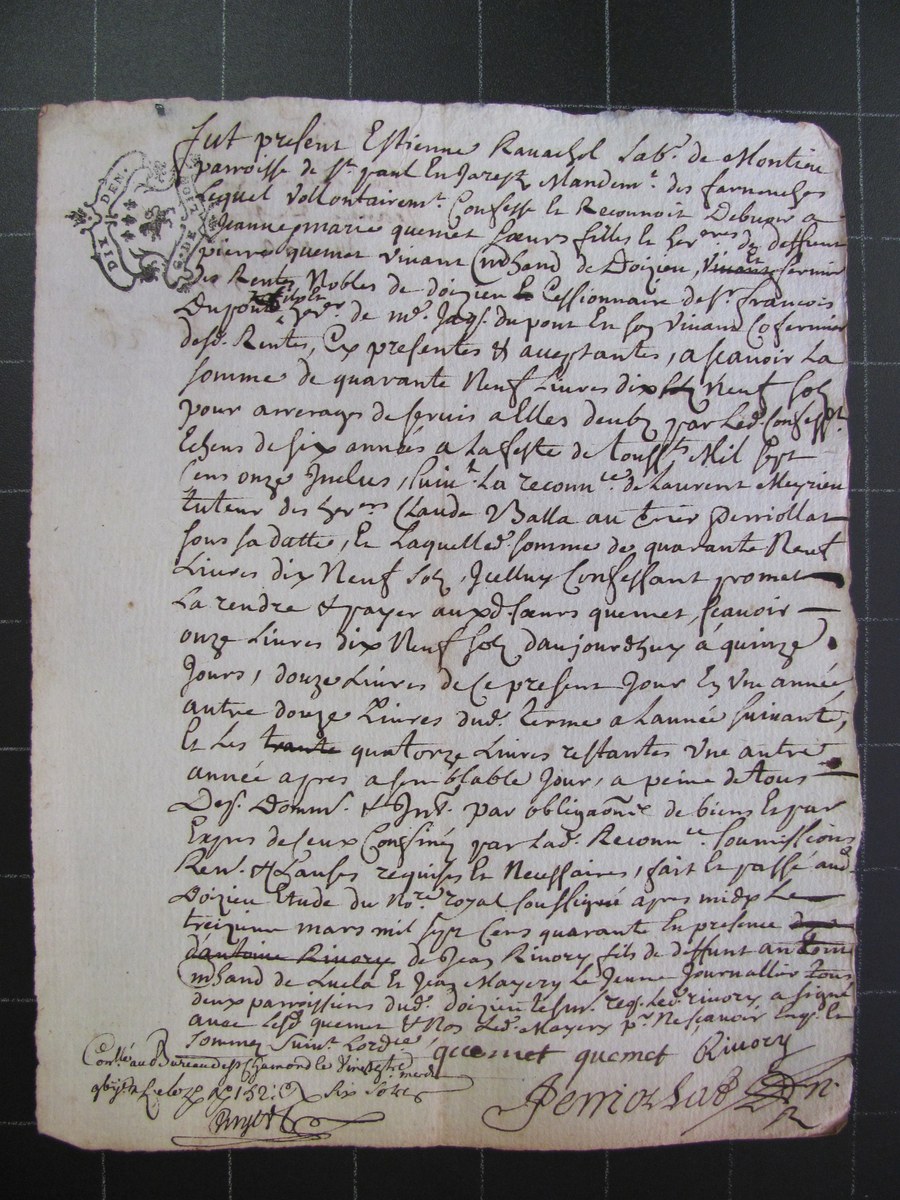 DIX DEN.
G. DE
Fut present Estienne Ravachol Lab.r de Montieu
parroisse de St. paul En Jarestz Mandem.t des farnanches
Lequel vollontairem.t Confesse et Reconnoit Debvoir a
Jeanne marie quemet sœurs filles et her.eres de deffunt
pierre quemet vivant mhand de Doizieu, vivant Et fermier
des Rentes Nobles de doizieu Et Cessionnaire de Sr. françois
Dupont her.er de me. Jaqs. dupont En son vivant Cofermier
desd. Rentes, Cy presentes & acceptantes, a scavoir La
somme de quarante Neuf Livres dix Neuf sols
pour arrerages de servis a Elles deubz par Led. Confess.t
Echeus de six années a La feste de toussts Mil sept
Cens onze Inclus, suiv.t La reconn.ce de Laurent Meyrieu
tuteur des hers Claude Valla au terrier Perriollat
sous sa datte, Et Laquelle d. somme de quarante Neuf
Livres dix Neuf sols, Icelluy Confessant promet
La rendre & payer auxd. sœurs quemet, scavoir
onze Livres dix Neuf sols daujourdhuy à quinze
Jours, douze Livres de Ce present Jour En une année
autre douze Livres dud. terme a Lannée suivante,
Et Les trante quatorze Livres restantes une autre
année apres a semblable Jour, a peine de tous
Desp. Domm. & Int. par obligaõn de biens Et par
Expres de Ceux Confinés par Lad. Reconn.ce soumissions
Ren. & Clauses requises Et Necessaires, fait Et passé aud.
Doizieu Etude du No.re royal soussigné apres midy Le
treizieme mars mil sept Cens quarante En presence
d'antoine Rivory de Jean Rivory fils de deffunt antoine
mhand de Luela Et Jean Mayery Le Jeune Journallier tous
deux parroissiens dud. doizieu tesm. req. Led. rivory a signé
avec Lesd. quemet & Non Led. Mayery p.r Ne scavoir Enq. Et
sommé suiv.t Lord.ce
quemet quemet Rivory
Conllé au Bureau de St. Chamond le
six sols
Perriollat